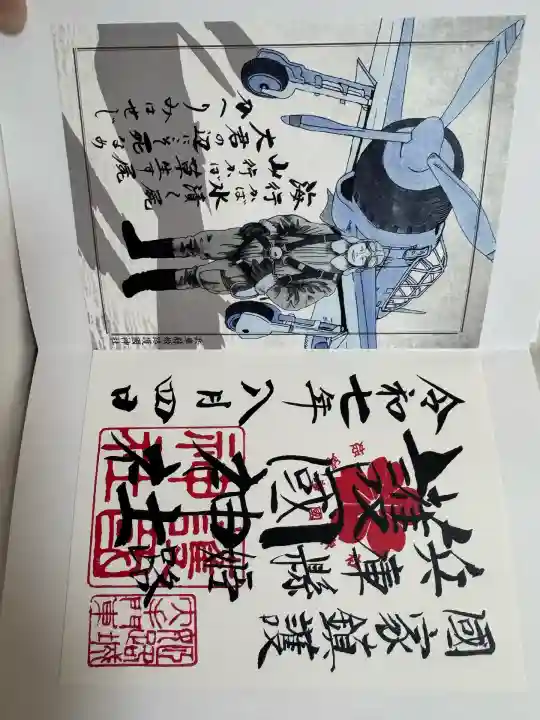 海行かば 水漬く屍
山行かば 草生す屍
大君の 辺にこそ死なめ
かへりみはせじ
兵庫縣姫路護國神社
國家鎮護
兵庫縣姫路
護國神社
令和七年八月四日